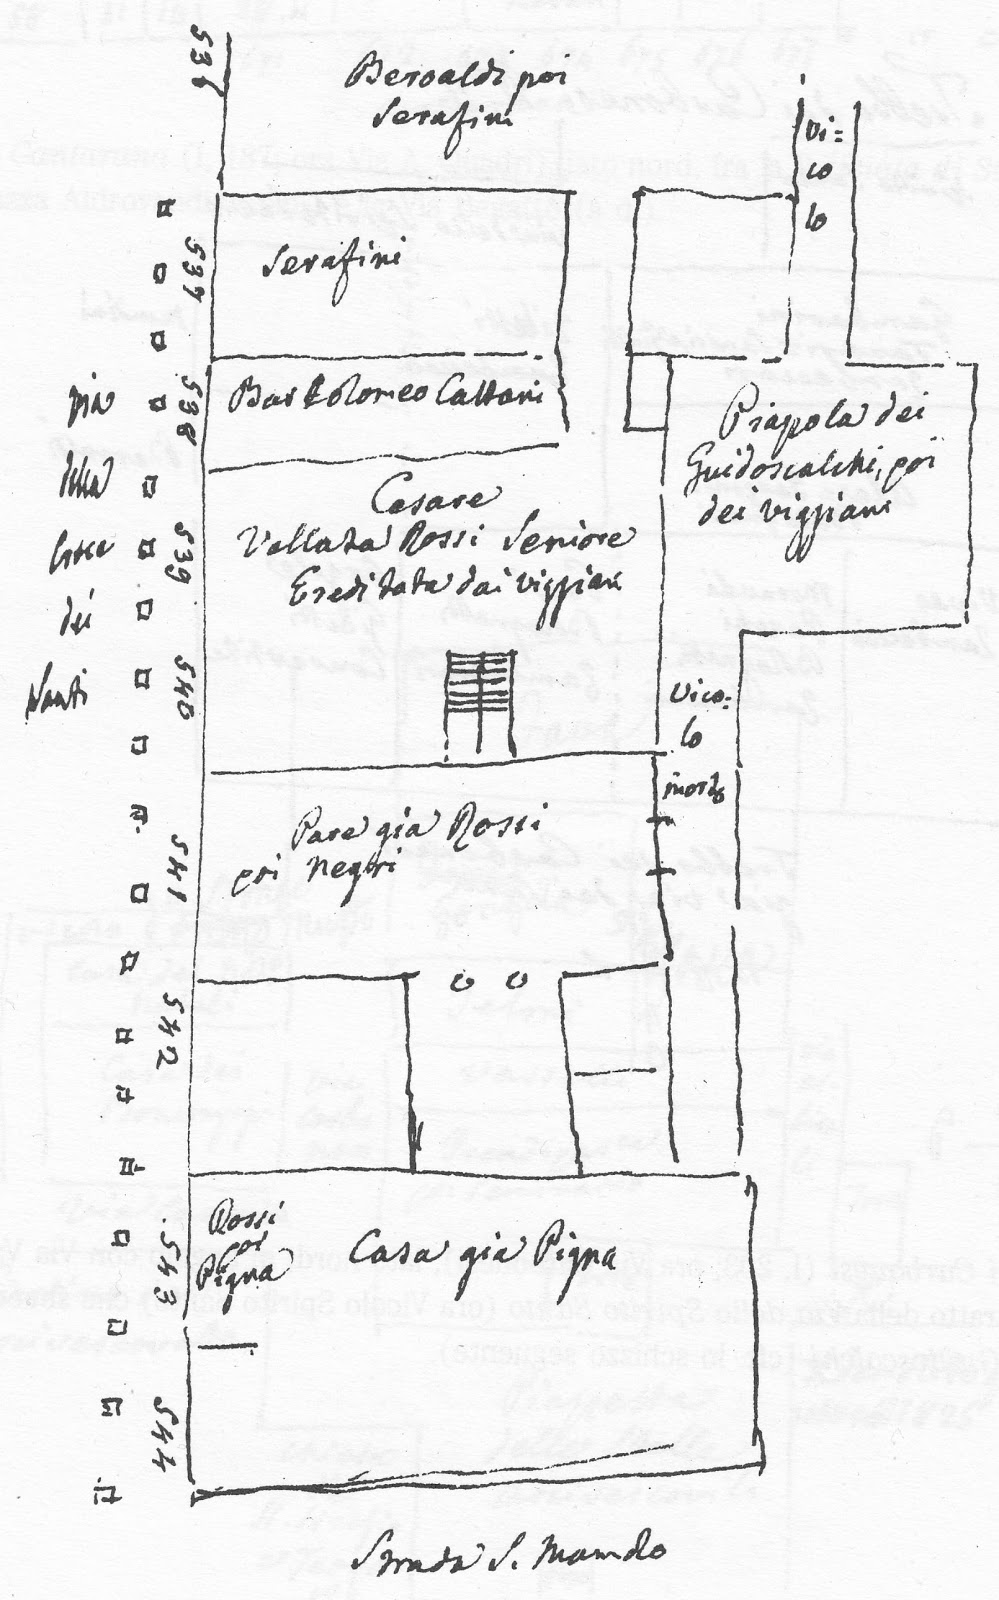 536
Beroaldi poi
Serafini
Vi=
co
lo
537
Serafini
538
Bartolomeo Cattani
Piappola dei
Guidoscalchi, poi
dei Viggiani
via
della
Croce
dei
Santi
539
Cesare
Vallata Rossi Seniore
Ereditata dai Viggiani
540
Vico-
lo
morto
541
Pare già Rossi
poi Negri
542
543
Rossi
poi
Pigna
Casa già Pigna
544
Strada S. Mamolo